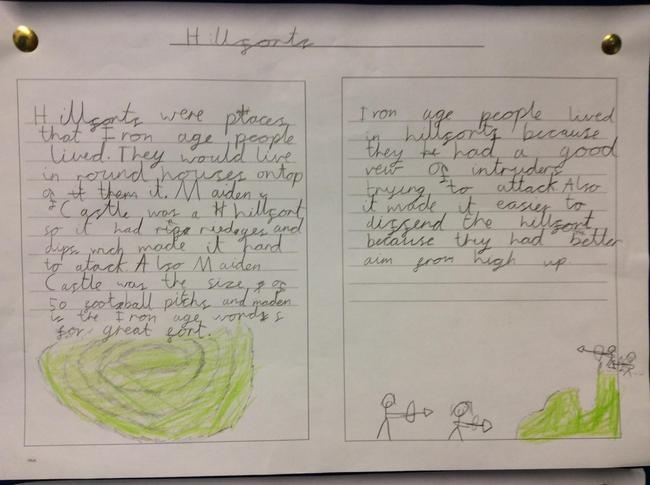 Hillforts
Hillforts were places
that Iron age people
lived. They would live
in round houses ontop
of them it. Maiden
Castle was a hillfort
so it had ruedges and
dips wich made it hard
to atack. Also Maiden
Castle was the size of
50 football pitchs and maden
is the Iron age words
for great fort.
Iron age people lived
in hillforts because
they had a good
vew of intruders
trying to attack. Also
it made it easier to
diffend the hillfort
because they had better
aim from high up.